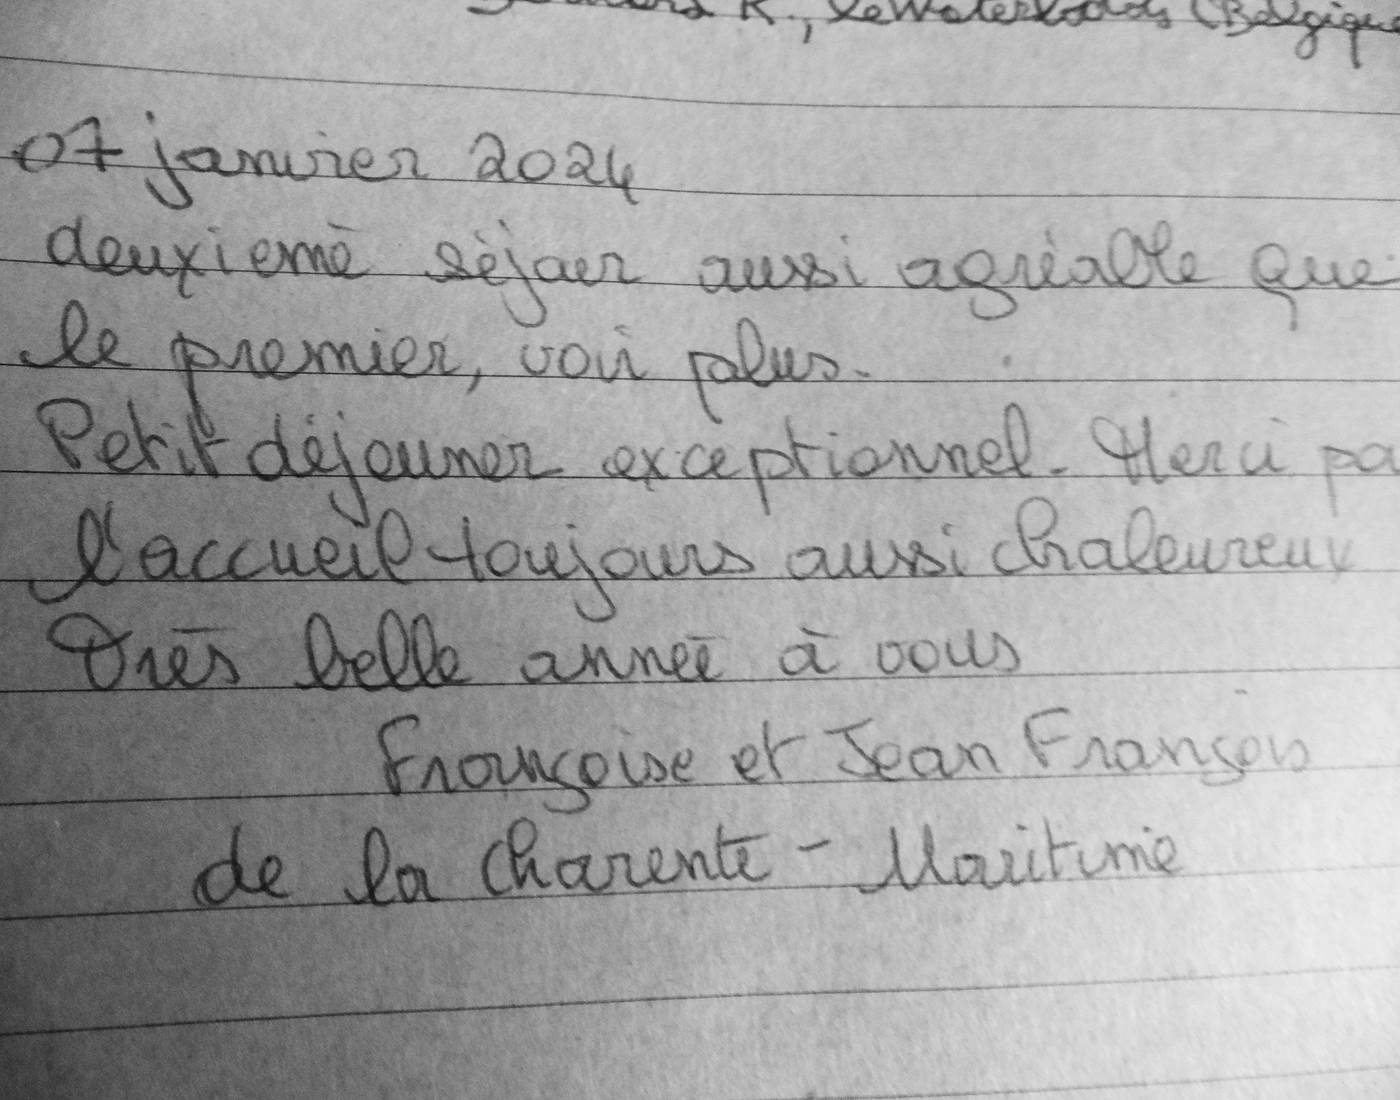 K., (Belgique
07 janvier 2024
deuxième séjour aussi agréable que
le premier, voir plus.
Petit déjeuner exceptionnel. Merci po
l'accueil toujours aussi chaleureux
Très belle année à vous
Françoise et Jean François
de la Charente - Maritime